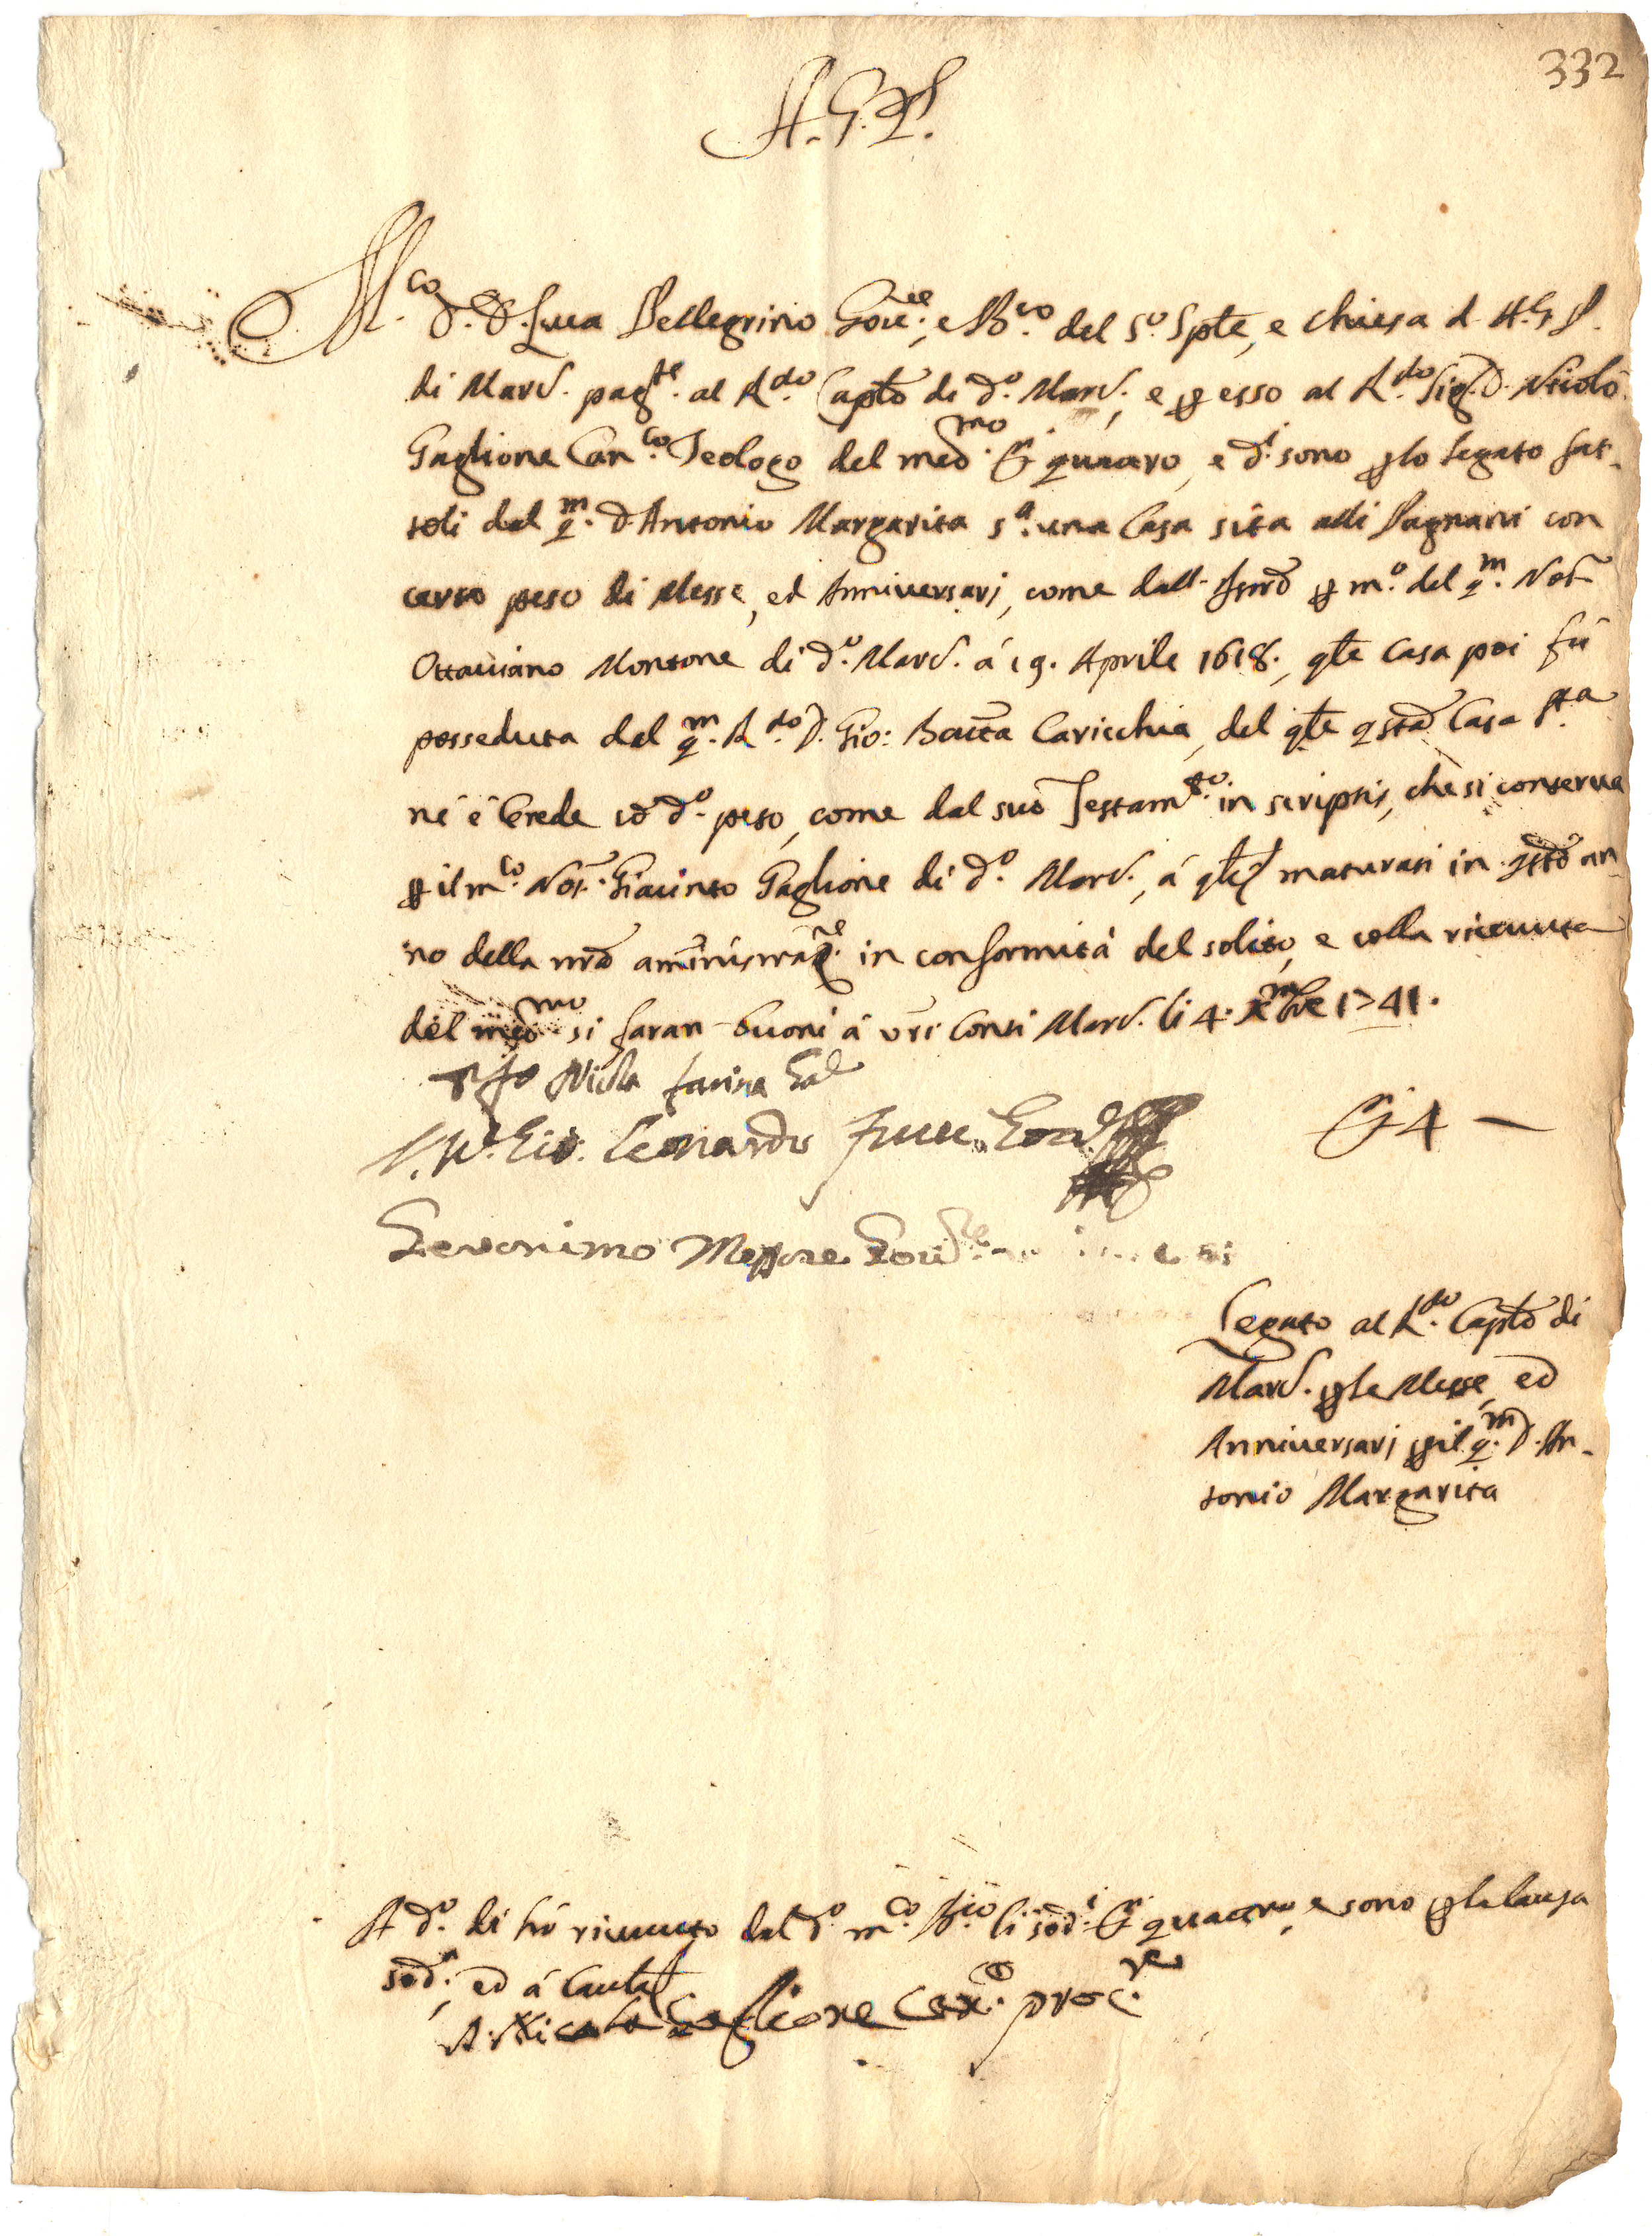 332
A. G. P.
M.co D. D. Luca Pellegrino Gou.re, e B.co del S.o Sple, e chiesa d. A. G. P.
di Marc. pag.te al R.do Caplo di d.o Marc., e p esso al R.do Sig. D. Nicolò
Gaglione Can.co Teologo del med.mo d. quattro, e d.i sono p lo legato fat-
toli dal q.m D. Antonio Margarita s.a una Casa sita alli Pagnani con
certo peso di Messe, ed Anniversarj, come dall' p m.o del q.m Not.
Ottaviano Montone di d.o Marc. á 19. Aprile 1618., qle Casa poi fù
posseduta dal q.m R.do D. Gio: Batta Caricchia, del qle qsta Casa S.ta
né é Erede co d.o peso, come dal suo Testam.to in scriptis, che si conserva
p il m.co Not. Giacinto Gaglione di d.o Marc., á qli maturati in qsto an
no della nra amministraz.ne in conformitá del solito, e colla ricevuta
del med.mo si faran buoni á vri Conti Marc. li 4. Xmbre 1741.
Nicola Farina Gov
Gio: Leonardo Gov
d. 4 —
Geronimo Messore Gou.re
Legato al R.do Caplo di
Marc. p le Messe, ed
Anniversarj p il q.m D. An-
tonio Margarita
A d.o dì hò ricevuto dal d.o m.co B.co li sod.i d. quattro, e sono p la causa
sod.a, ed á Cautla
D. Nicola Gaglione Can.co proc.re